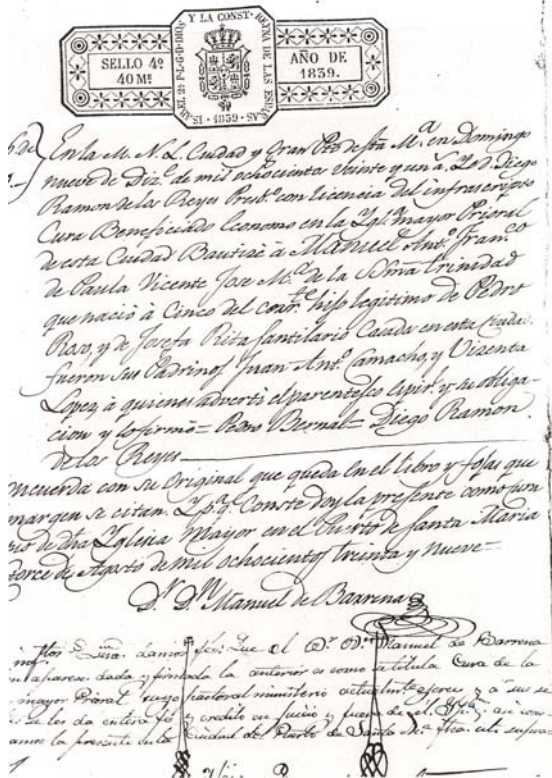 SELLO 4º
40 Mˢ
ISABEL 2ª P·L·G·D·DIOS Y LA CONST· REYNA DE LAS ESPAÑAS
· 1839 ·
AÑO DE
1839.
En la M. N. L. Ciudad y Gran Pto de Sta Mª en Domingo
nueve de Dizᵉ de mil ochocientos veinte y un a. Yo d. Diego
Ramon de los Reyes Presbº con licencia del infrascripto
Cura Beneficiado Economo en la Yglª mayor Prioral
de esta Ciudad Bautizè à Manuel Antº Franᶜᵒ
de Paula Vicente Jose Mª de la SSma trinidad
que naciò à Cinco del corrᵗᵉ hijo legitimo de Pedro
Roxo, y de Josefa Rita Santilario Casada en esta Ciudad
fueron sus Padrinos Juan Antº Camacho, y Vizenta
Lopez à quienes adverti el parentesco espirˡ y su obliga-
cion y lo firmò = Pedro Bernal = Diego Ramon
de los Reyes
ncuerda con su Original que queda en el libro y fojas que
margen se citan. Y pª qᵉ Conste doy la presente como
de dha Yglesia Mayor en el Puerto de Santa Maria
torce de Agosto de mil ochocientos treinta y nueve =
Dʳ Dⁿ Manuel de Barrena
damos fee: Que el Dʳ Dⁿ Manuel de Barrena
dada y firmada la anterior es como se titula Cura de la
mayor Prioral cuyo pastoral ministerio actualmᵗᵉ ejerce y à sus
se les da entera fe y credito en juicio y fuera de el. Y
la presente en la Ciudad de Puerto de Santa Mª fha. uti supra